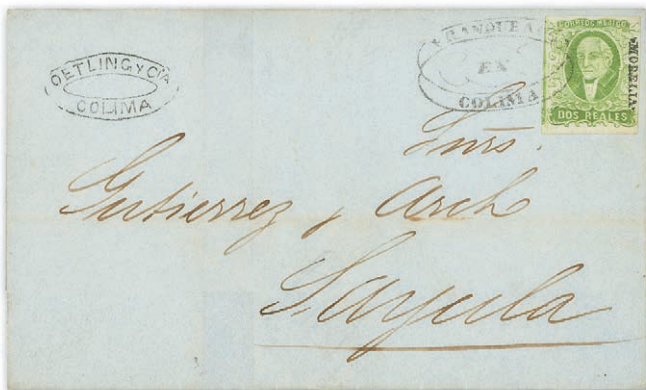 OETLING Y Cía
COLIMA
FRANQUEADO
EN
COLIMA
CORREOS MEJICO
DOS REALES
MORELIA
Sres.
Gutierrez y Arch
Sayula